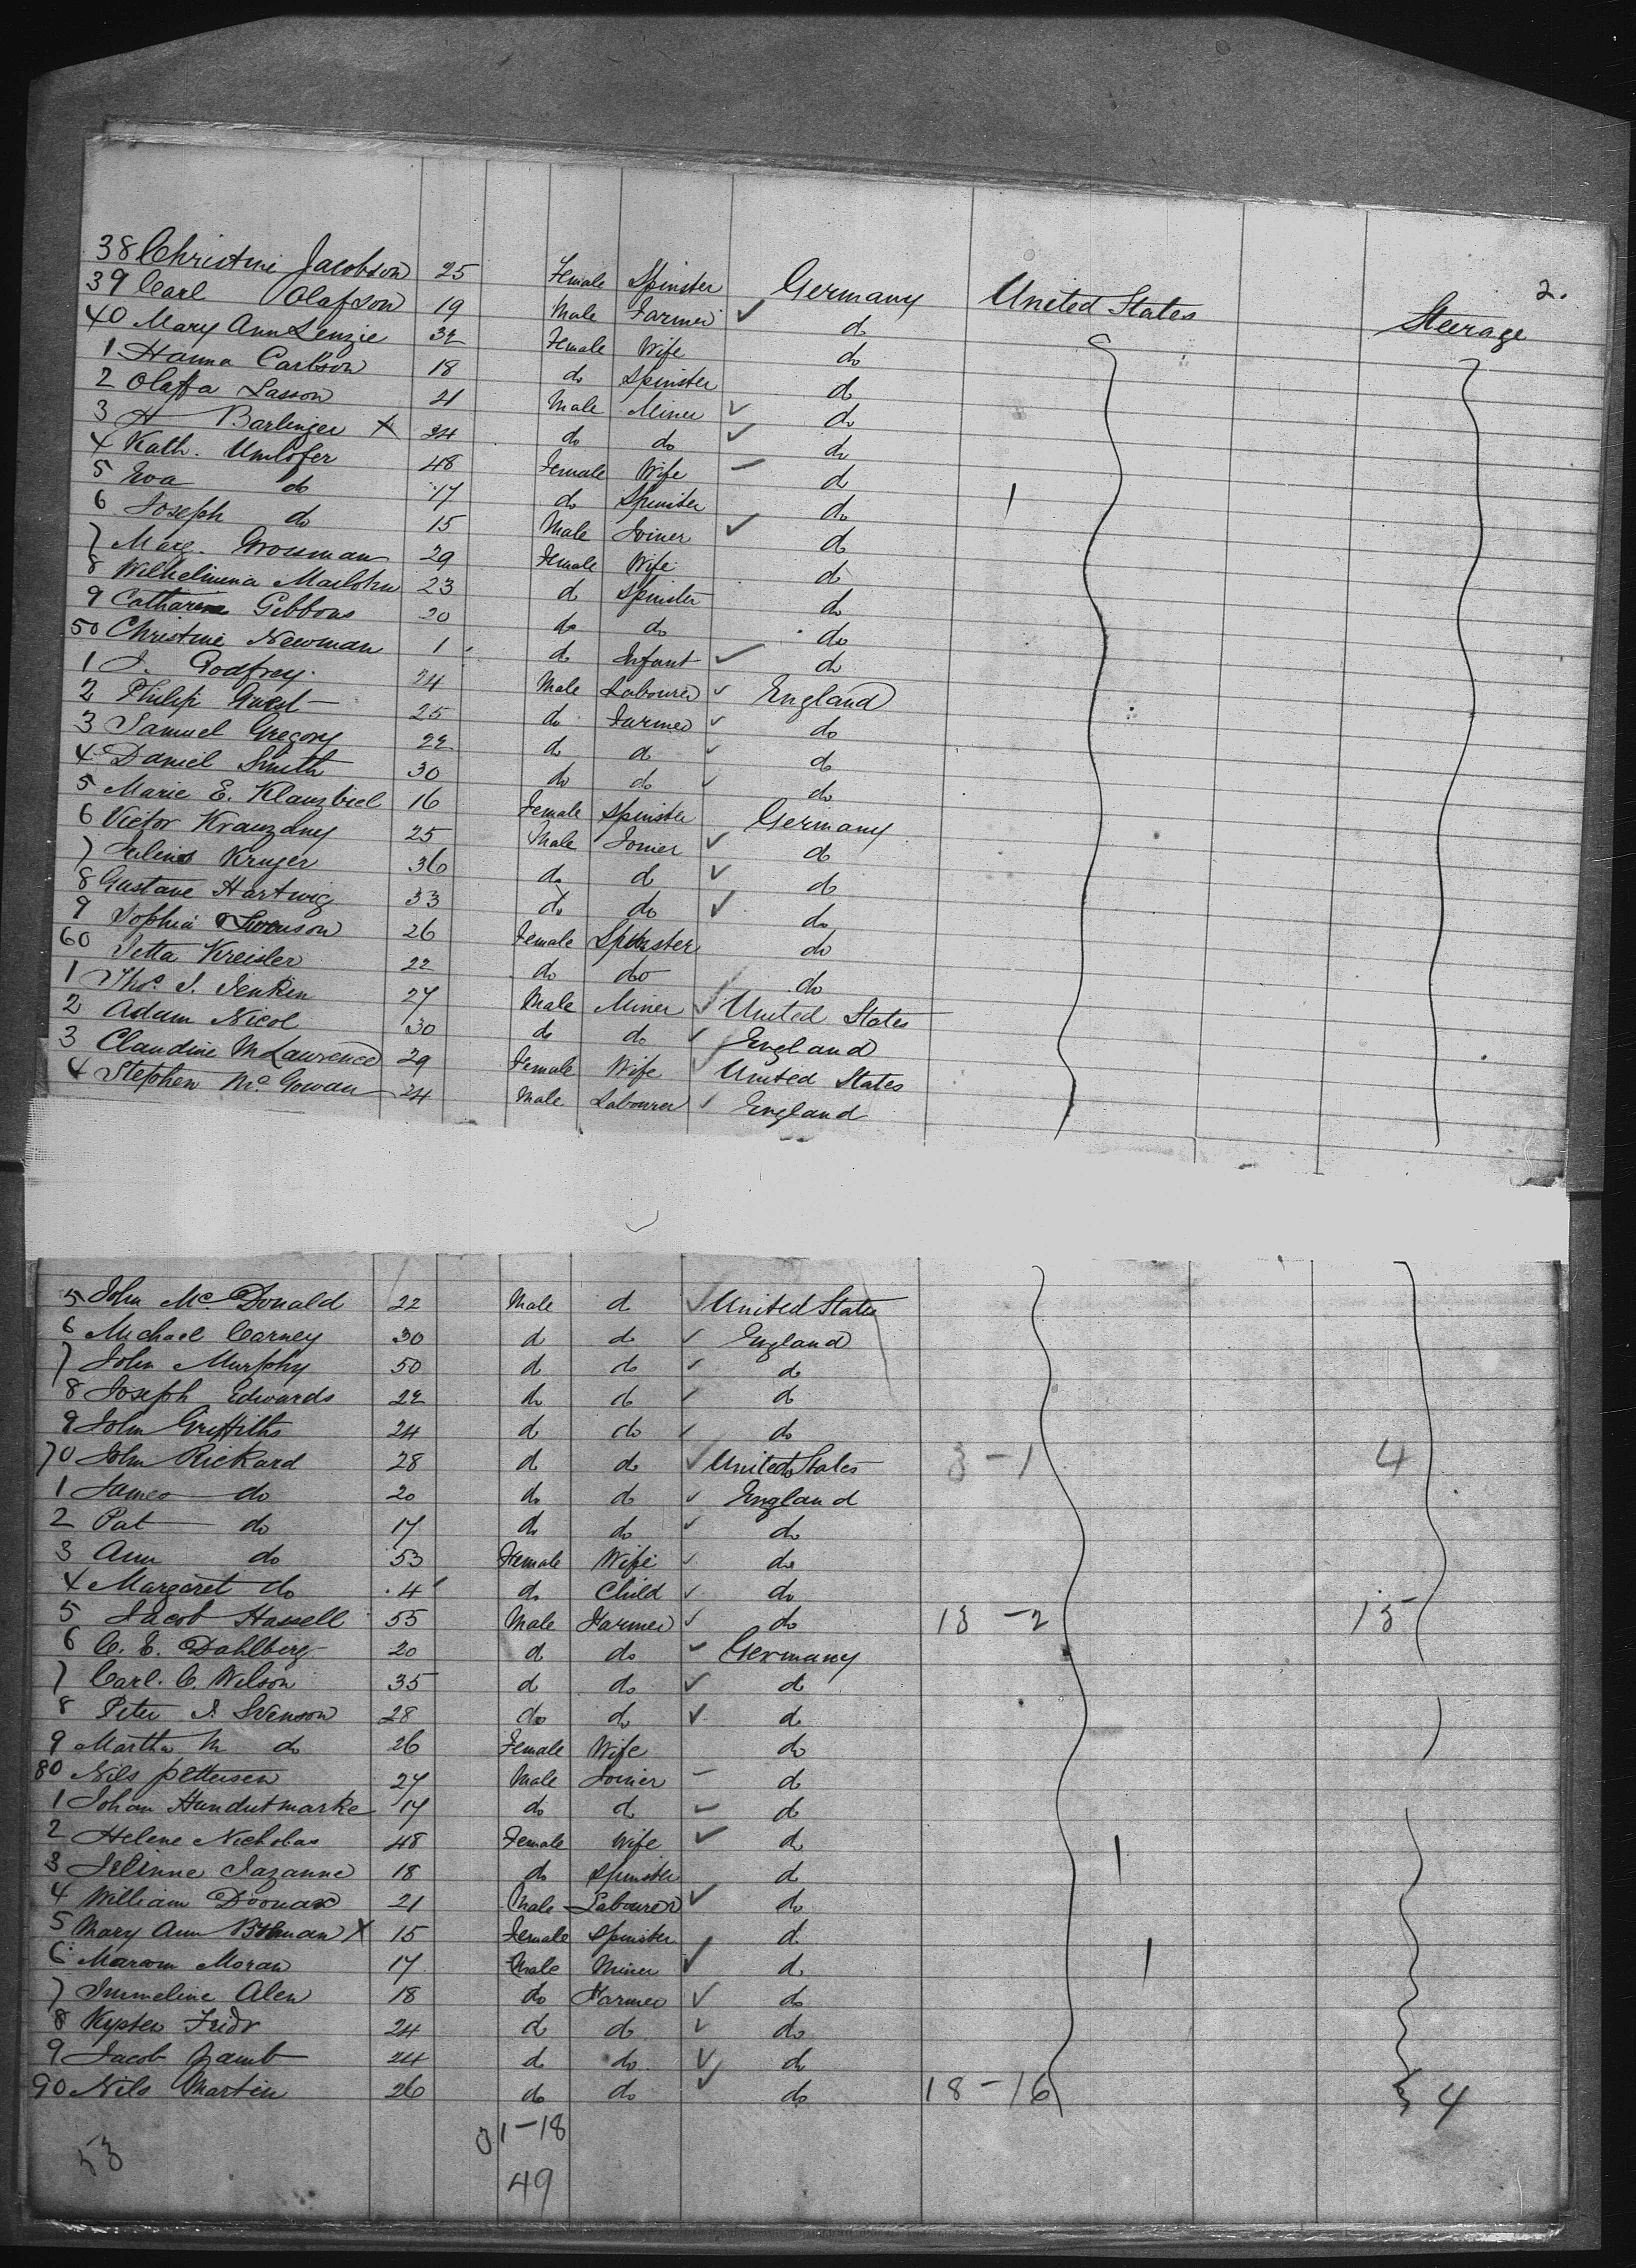 2.
38 Christine Jacobson 25 Female Spinster Germany United States Steerage
39 Carl Olafson 19 Male Farmer do
40 Mary Ann Lenzie 32 Female Wife do
1 Hanna Carlson 18 do Spinster do
2 Olaffa Lasson 21 Male Miner do
3 H Barlinger X 34 do do do
4 Kath. Umlofer 48 Female Wife do
5 Eva do 17 do Spinster do 1
6 Joseph do 15 Male Joiner do
7 Marg. Grossman 29 Female Wife do
8 Wilhelmina 23 do Spinster do
9 Catharine Gibbons 20 do do do
50 Christine Newman 1 do Infant do
1 J. Godfrey 24 Male Labourer England
2 Philip 25 do Farmer do
3 Samuel Gregory 22 do do do
4 Daniel Smith 30 do do do
5 Marie E. Klanzbiel 16 Female Spinster Germany
6 Victor Krauzdny 25 Male Joiner do
7 Julius Kruger 36 do do do
8 Gustave Hartwig 33 do do do
9 Sophia Swenson 26 Female Spinster do
60 Jetta Kreisler 22 do do do
1 Thos. J. Jenkin 27 Male Miner United States
2 Adam Nicol 30 do do England
3 Claudine M Lawrence 29 Female Wife United States
4 Stephen McGowan 24 Male Labourer England
5 John McDonald 22 Male do United States
6 Michael Carney 30 do do England
7 John Murphy 50 do do do
8 Joseph Edwards 22 do do do
9 John Griffiths 24 do do do
70 John Rickard 28 do do United States 3-1 4
1 James do 20 do do England
2 Pat do 17 do do do
3 Ann do 53 Female Wife do
4 Margaret do 4 do Child do
5 Jacob Hassell 55 Male Farmer do 13-2 15
6 C. E. Dahlberg 20 do do Germany
7 Carl. C. Wilson 35 do do do
8 Peter J. Svenson 28 do do do
9 Martha M do 26 Female Wife do
80 Nils Pettersen 27 Male Joiner do
1 Johan Hundutmarke 17 do do do
2 Helene Nicholas 48 Female Wife do 1
3 18 do Spinster do
4 William 21 Male Labourer do
5 Mary Ann X 15 Female Spinster do
6 Moran 17 Male Miner do 1
7 Immeline Alen 18 do Farmer do
8 24 do do do
9 Jacob Lamb 24 do do do
90 Nils Martin 26 do do do 18-16 4
31-18
53
49